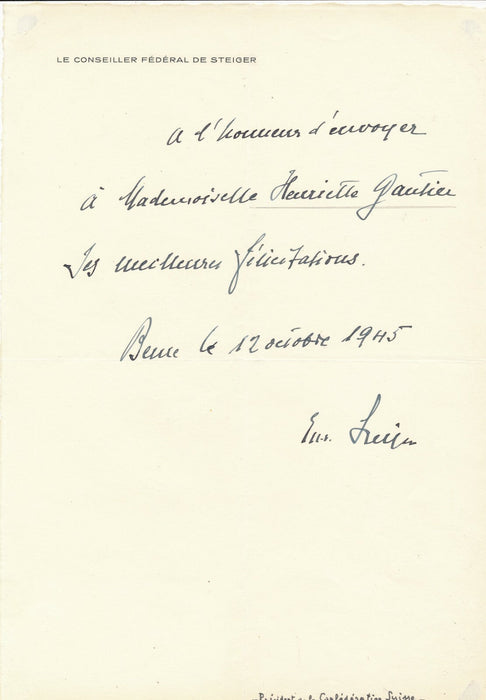 LE CONSEILLER FÉDÉRAL DE STEIGER
a l'honneur d'envoyer
à Mademoiselle Henriette Gautier
ses meilleures félicitations.
Berne le 12 octobre 1945
Ed. Steiger
Président de la Confédération Suisse